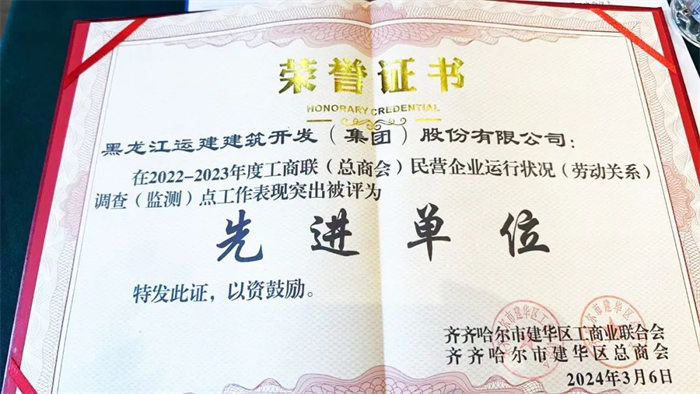 荣誉证书
HONORARY CREDENTIAL
黑龙江运建建筑开发（集团）股份有限公司：
在2022-2023年度工商联（总商会）民营企业运行状况（劳动关系）
调查（监测）点工作表现突出被评为
先进单位
特发此证，以资鼓励。
齐齐哈尔市建华区工商业联合会
齐齐哈尔市建华区总商会
2024年3月6日